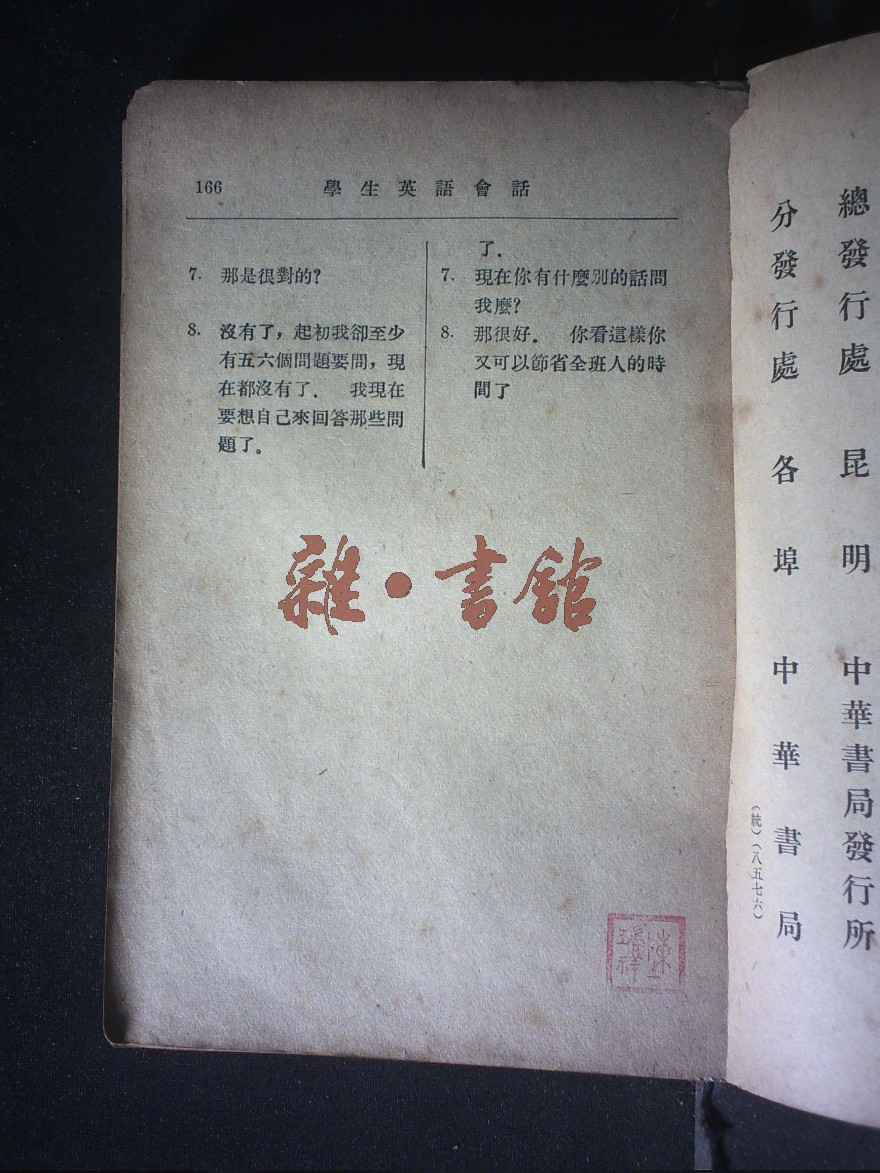 166 學生英語會話
7. 那是很對的?
8. 沒有了,起初我卻至少
有五六個問題要問,現
在都沒有了. 我現在
要想自己來回答那些問
題了。
了.
7. 現在你有什麼別的話問
我麼?
8. 那很好. 你看這樣你
又可以節省全班人的時
間了
雜·書館
總發行處 昆明 中華書局發行所
分發行處 各埠 中華書局
(統)(八五七六)